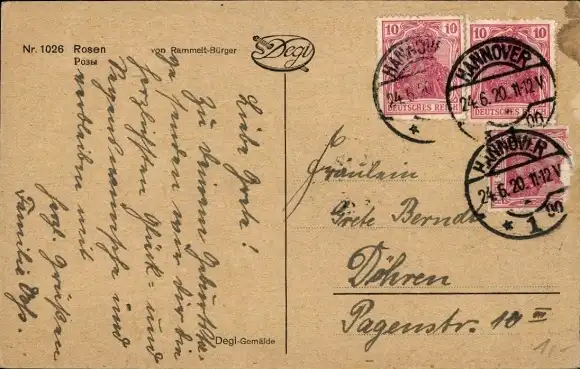 Nr. 1026 Rosen
Розы
von Rammelt-Bürger
Degi
Liebe Grete!
Zu Deinem Geburtsta-
ge senden wir Dir die
herzlichsten Glück- und
Segenswünsche und
verbleiben mit
herzl. Grüßen
Familie
Degi-Gemälde
10 10
DEUTSCHES REICH
10 10
DEUTSCHES REICH
HANNOVER
24.6.20.
HANNOVER
24.6.20.11-12V
HANNOVER
24.6.20.11-12V
* 1
Fräulein
Grete Berndt
Döhren
Pagenstr. 10 III
1,-